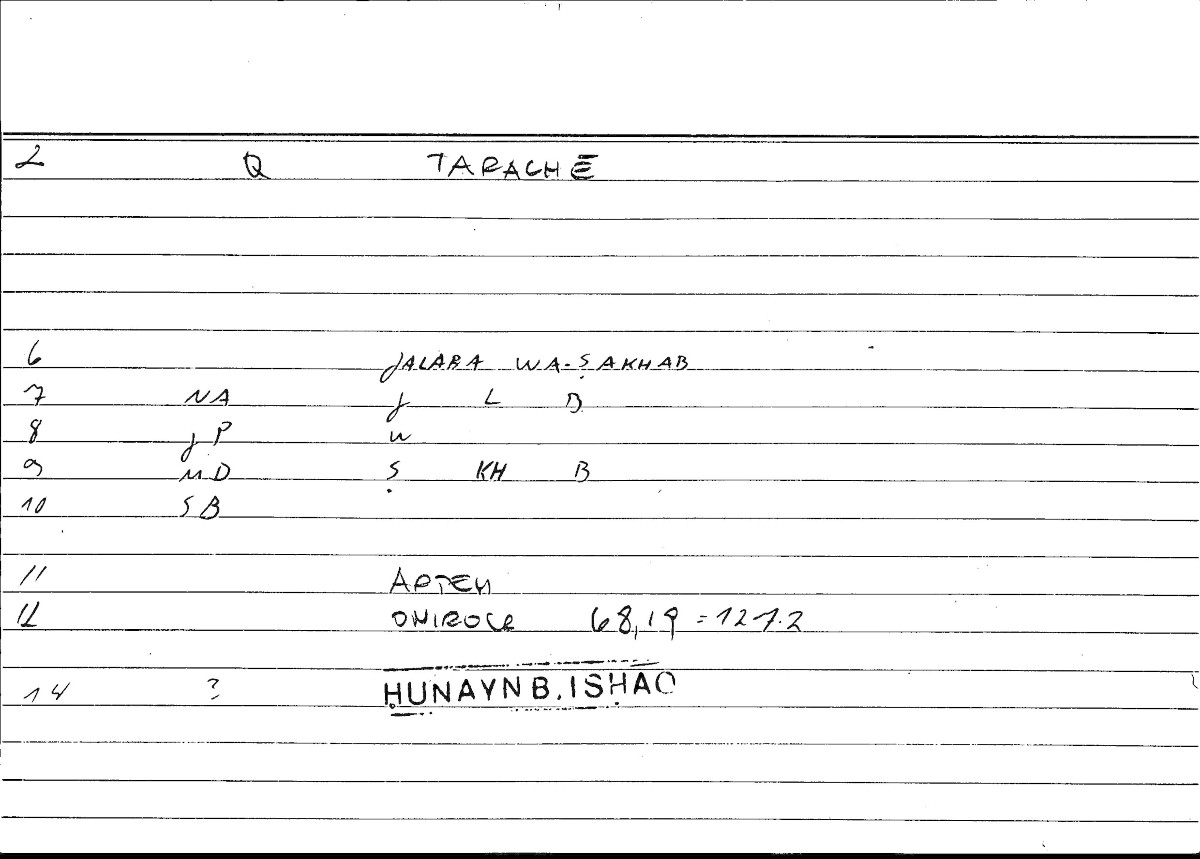 2 Q TARACHĒ
6 JALABA WA-ṢAKHAB
7 NA J L B
8 JP W
9 MD Ṣ KH B
10 SB
11 ARTEM
12 ONIROCR 68,19 = 127.2
14 ? ḤUNAYN B. ISḤAQ